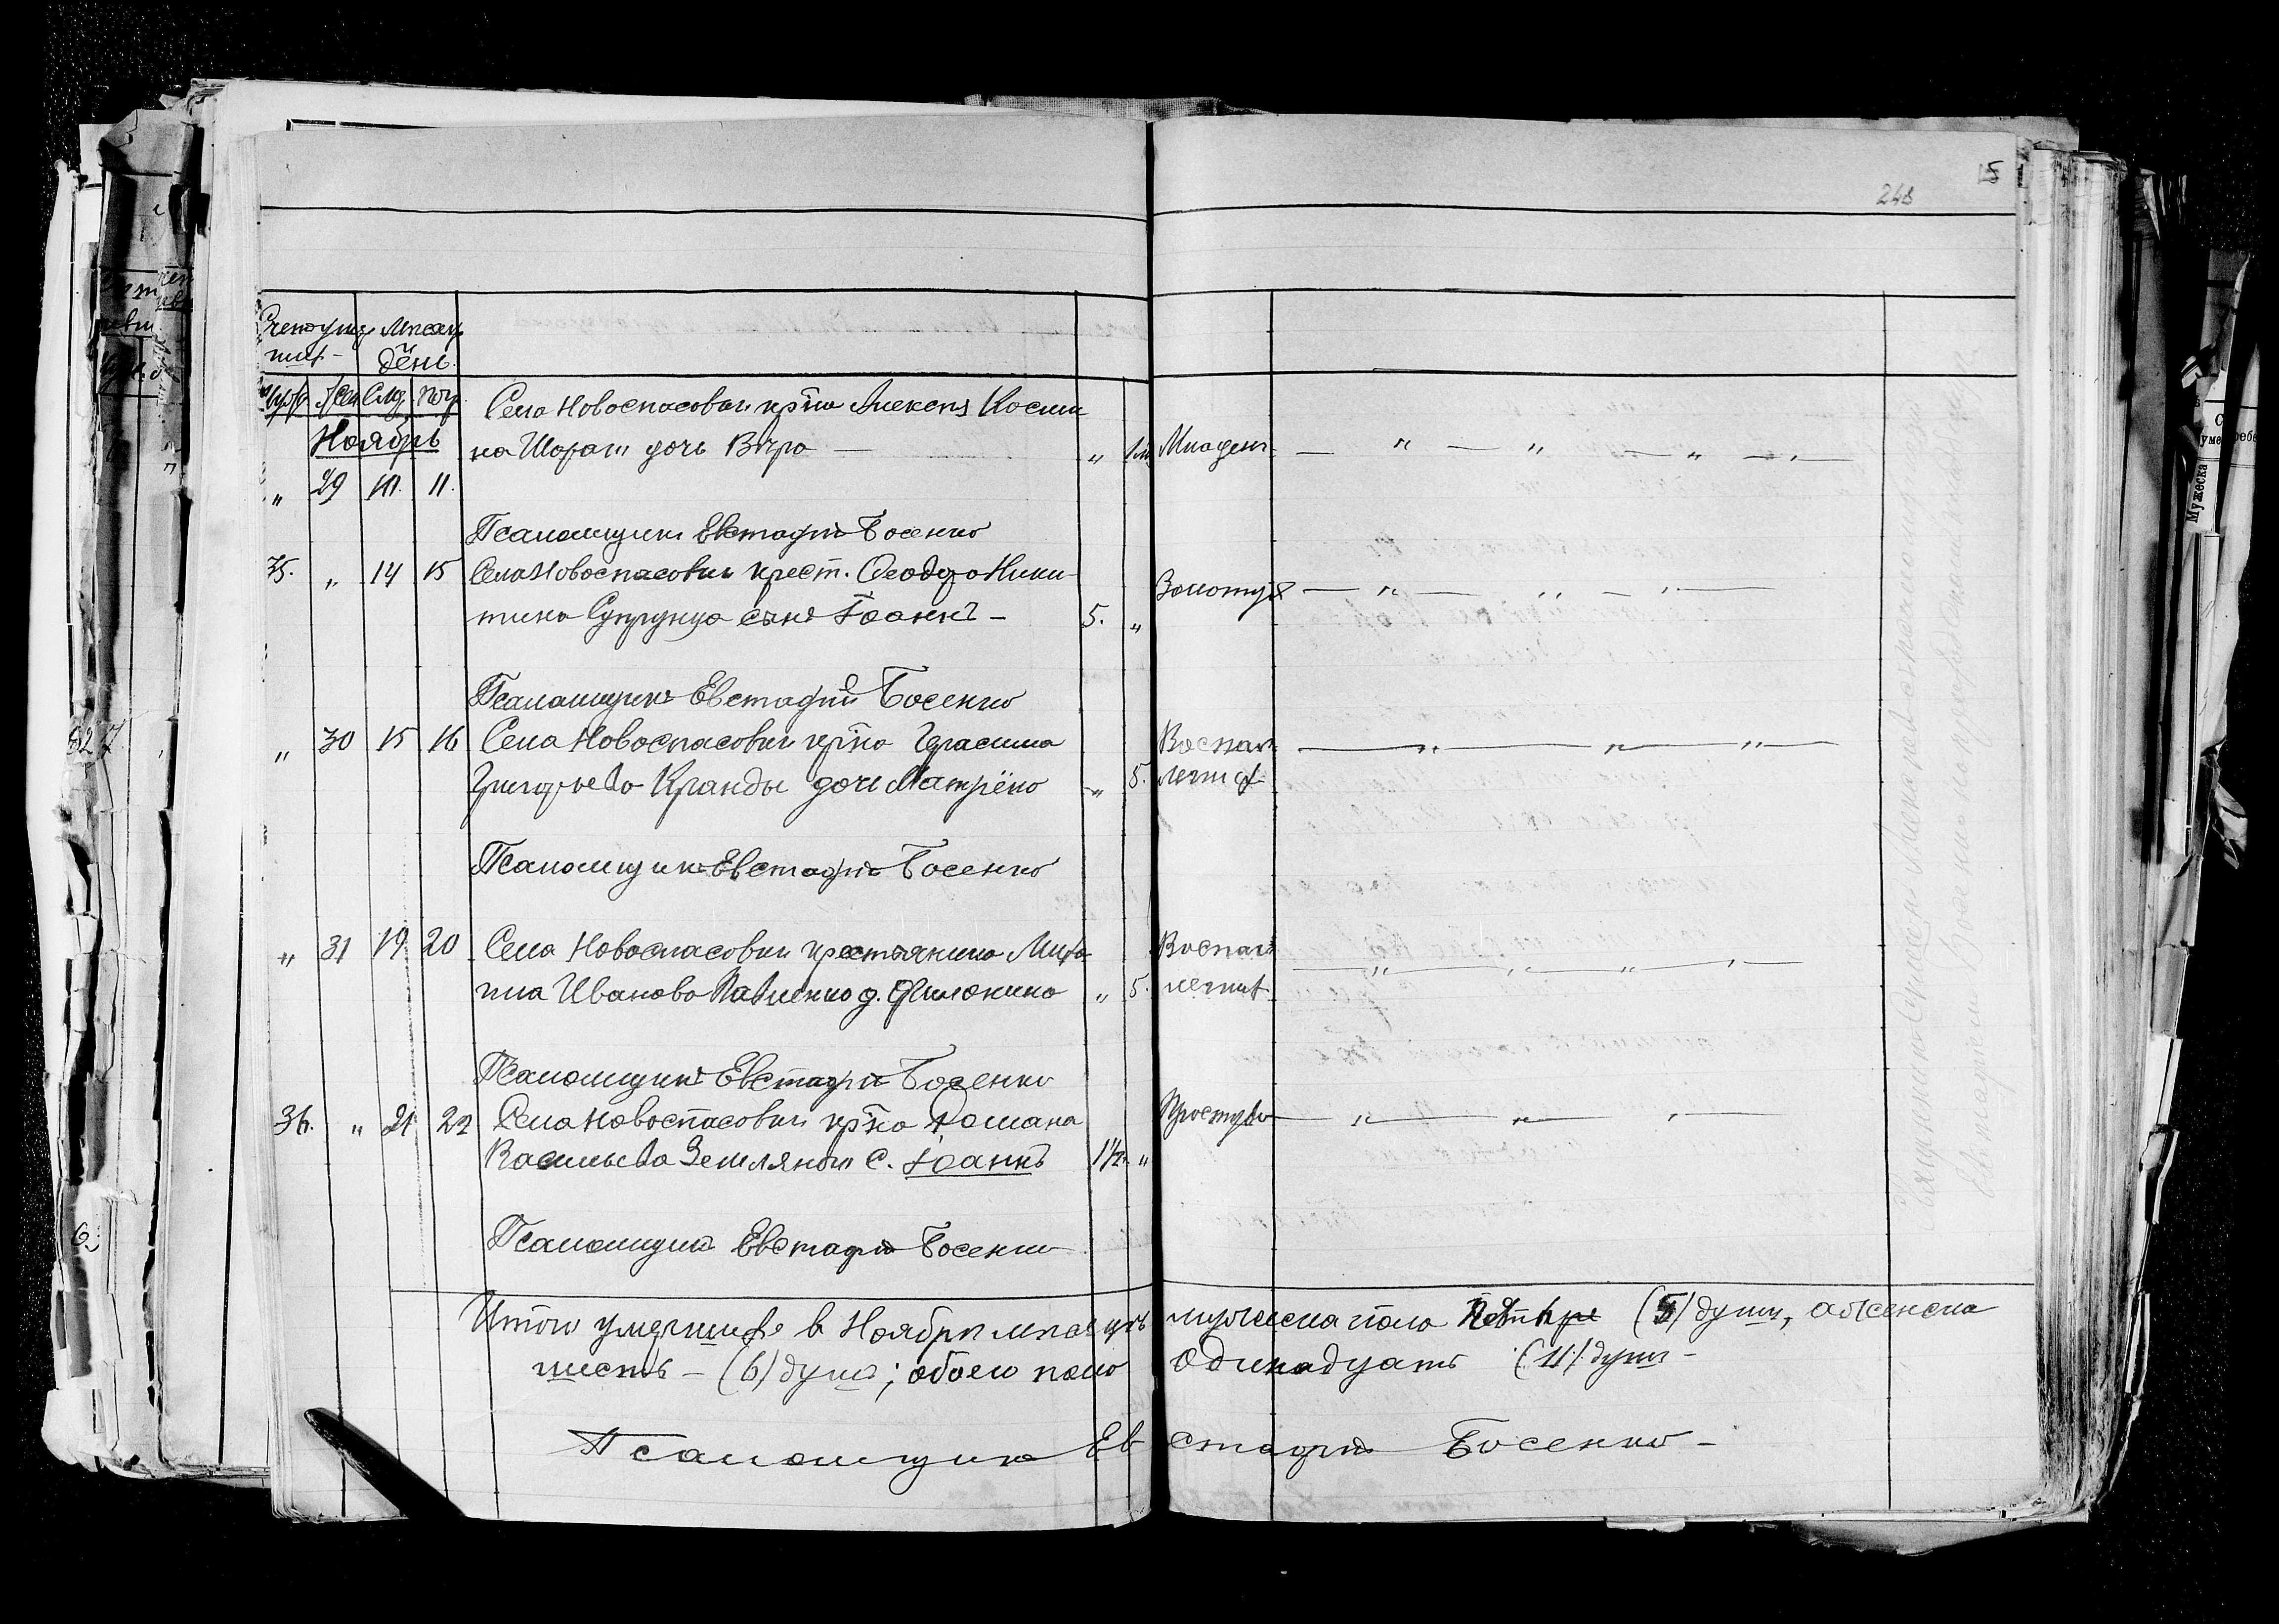 5
248
Счетъ умер Мѣсяц
шихъ и день.
Муж. Жен Смер. Погр.
Ноябрь
Села Новоспасовки кр-на Алексѣя Косми
на дочь Вѣра — " Младен.
" 29 10. 11.
Псаломщикъ Евстафій Босенко
35. " 14 15 Села Новоспасовки крест. Ѳеодора Ники-
тина Супрунца сынъ Іоаннъ - 5. " Золотух
Псаломщикъ Евстафій Босенко
" 30 15 16 Села Новоспасовки кр-на Герасима Воспал.
Григорьева дочь Матрёна " 5. легких
Псаломщикъ Евстафій Босенко
" 31 19 20 Села Новоспасовки крестьянина Миха Воспал.
ила Иванова Павленко д. " 5. легких
Псаломщикъ Евстафій Босенко
36. " 21 22 Села Новоспасовки кр-на Романа Простуда
Васильева Земляного с. Іоаннъ 1½ "
Псаломщикъ Евстафій Босенко
Итого умершихъ в Ноябрѣ мѣсяцѣ мужеска пола (5) душъ, а женска
шесть - (6) душъ; обоего пола одинадцать (11) душъ -
Псаломщикъ Евстафій Босенко -